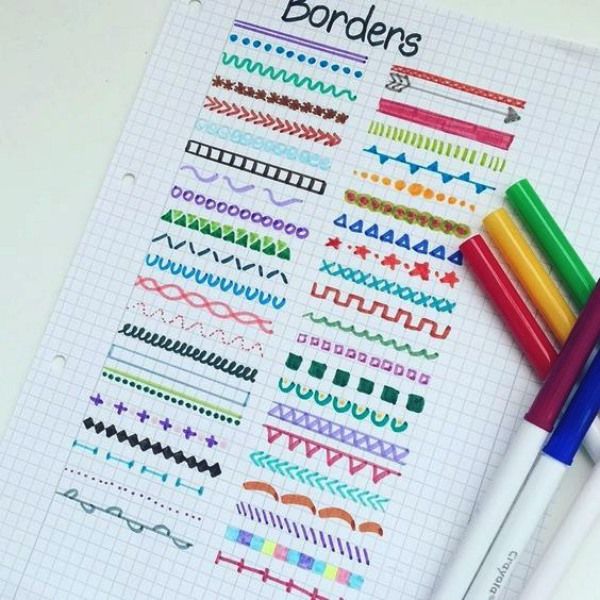 Borders
Crayola